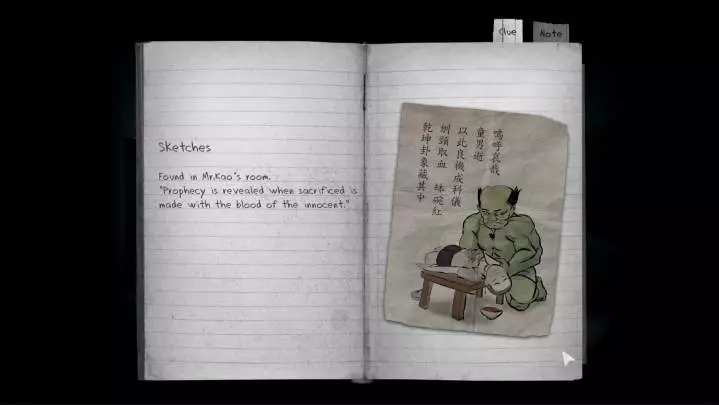 Clue
Note
Sketches
Found in Mr.Kao's room.
"Prophecy is revealed when sacrificed is
made with the blood of the innocent."
嗚呼哀哉
童男逝
以此良機成科儀
刎頸取血 缽碗紅
乾坤卦象藏其中